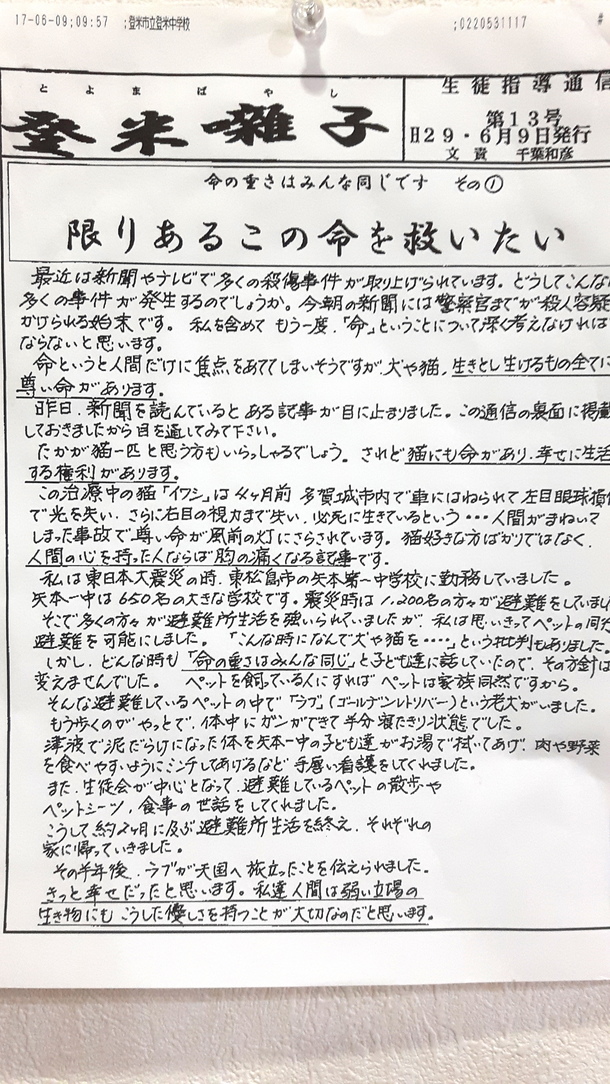 17-06-09;09:57 ;登米市立登米中学校 ;0220531117 #
とよまばやし
登米囃子
生徒指導通信
第13号
H29・6月9日発行
文責 千葉和彦
命の重さはみんな同じです その①
限りあるこの命を救いたい
最近は新聞やテレビで多くの殺傷事件が取り上げられています。どうしてこんな
多くの事件が発生するのでしょうか。今朝の新聞には警察官までが殺人容疑
かけられる始末です。私を含めてもう一度、「命」ということについて深く考えなければ
ならないと思います。
命というと人間だけに焦点をあててしまいそうですが、犬や猫、生きとし生けるもの全てに
尊い命があります。
昨日、新聞を読んでいるとある記事が目に止まりました。この通信の裏面に掲載
しておきましたから目を通してみて下さい。
たかが猫一匹と思う方もいらっしゃるでしょう。されど猫にも命があり、幸せに生活
する権利があります。
この治療中の猫「イワシ」は4ヶ月前 多賀城市内で車にはねられて左目眼球損
で光を失い、さらに右目の視力まで失い、必死に生きているという・・・人間がまねいて
しまった事故で尊い命が風前の灯にさらされています。猫好きな方ばかりではなく、
人間の心を持った人ならば胸の痛くなる記事です。
私は東日本大震災の時、東松島市の矢本第一中学校に勤務していました。
矢本一中は650名の大きな学校です。震災時は1,200名の方々が避難をしていまし
そこで多くの方々が避難所生活を強いられていましたが、私は思いきってペットの同
避難を可能にしました。「こんな時になんで犬や猫を・・・・」という批判もありました。
しかし、どんな時も「命の重さはみんな同じ」と子ども達に話していたので、その方針は
変えませんでした。 ペットを飼っている人にすればペットは家族同然ですから。
そんな避難しているペットの中で「ラブ」(ゴールデンレトリバー)という老犬がいました。
もう歩くのがやっとで、体中にガンができて半分寝たきり状態でした。
津波で泥だらけになった体を矢本一中の子ども達がお湯で拭いてあげ、肉や野菜
を食べやすいようにミンチしてあげるなど手厚い看護をしてくれました。
また、生徒会が中心となって、避難しているペットの散歩や
ペットシーツ、食事の世話をしてくれました。
こうして約2ヶ月に及ぶ避難所生活を終え、それぞれの
家に帰っていきました。
その半年後、ラブが天国へ旅立ったことを伝えられました。
きっと幸せだったと思います。私達人間は弱い立場の
生き物にもこうした優しさを持つことが大切なのだと思います。